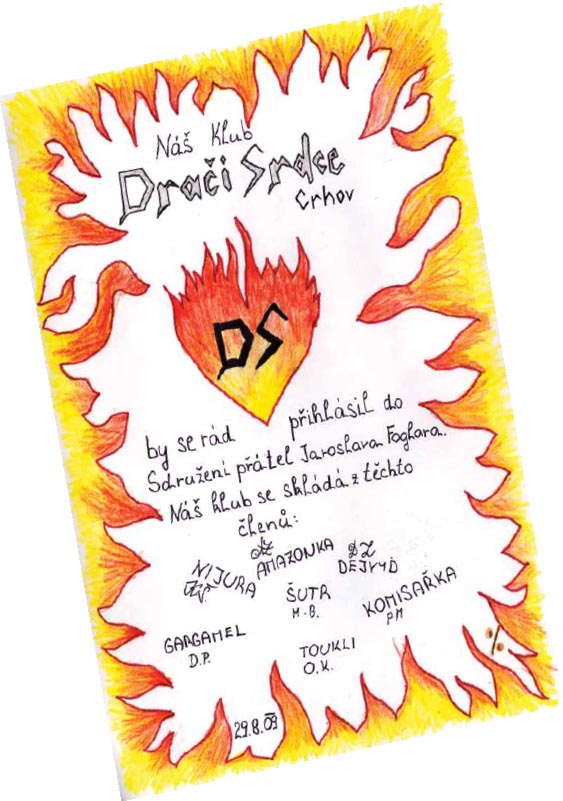 Náš klub
Dračí Srdce
Crhov
DS
by se rád přihlásil do
Sdružení přátel Jaroslava Foglara.
Náš klub se skládá z těchto
členů:
NIJURA
AMAZONKA
DZ
DEJVYD
ŠUTR
M.B.
KOMISAŘKA
PM
GARGAMEL
D.P.
TOUKLI
O.K.
29.8.09